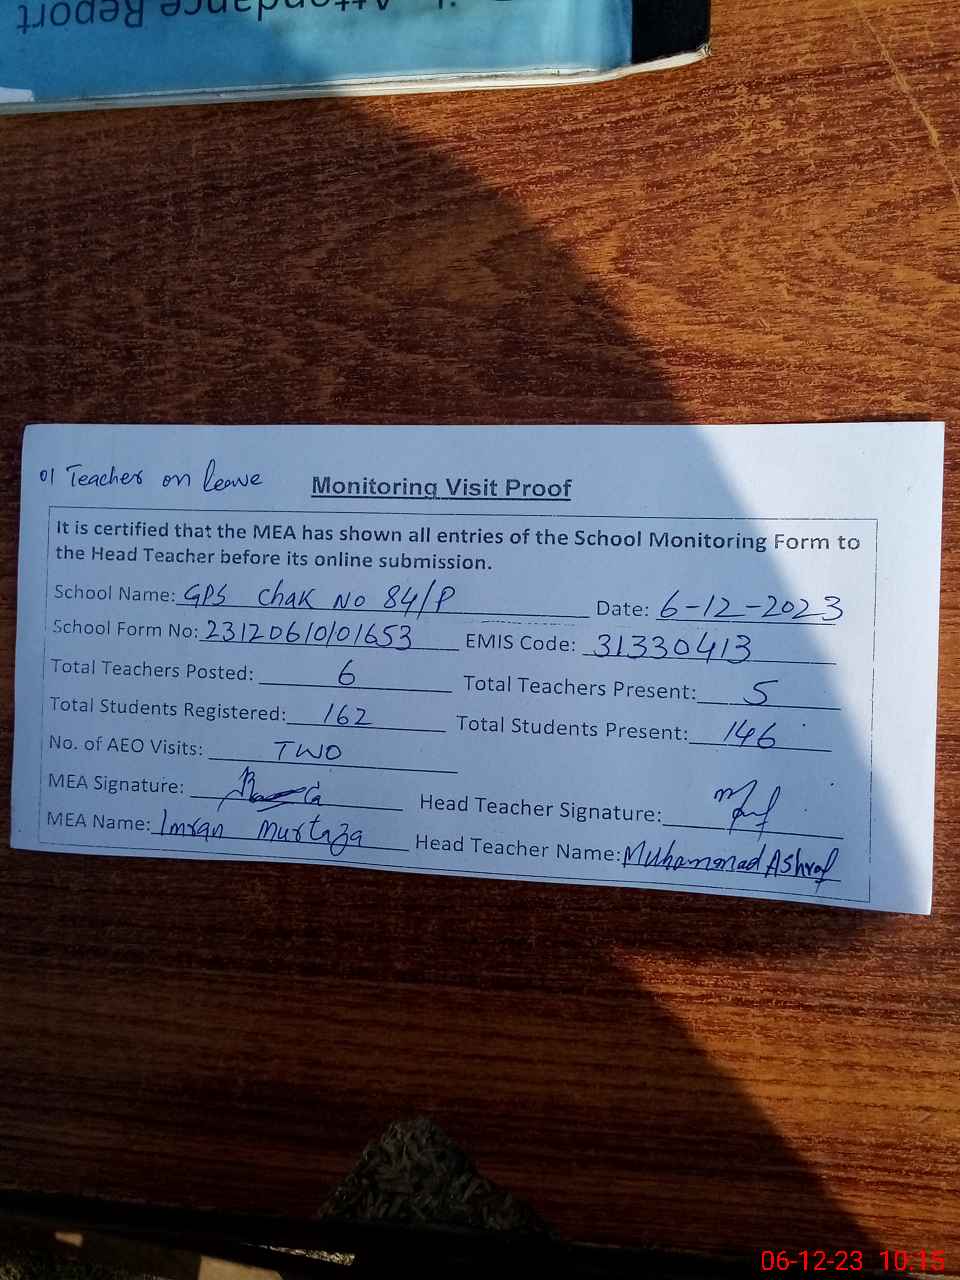 Attendance Report
01 Teacher on leave
Monitoring Visit Proof
It is certified that the MEA has shown all entries of the School Monitoring Form to
the Head Teacher before its online submission.
School Name: GPS Chak No 84/P Date: 6-12-2023
School Form No: 23120610101653 EMIS Code: 31330413
Total Teachers Posted: 6 Total Teachers Present: 5
Total Students Registered: 162 Total Students Present: 146
No. of AEO Visits: TWO
MEA Signature: Head Teacher Signature:
MEA Name: Imran Murtaza Head Teacher Name: Muhammad Ashraf
06-12-23 10:15